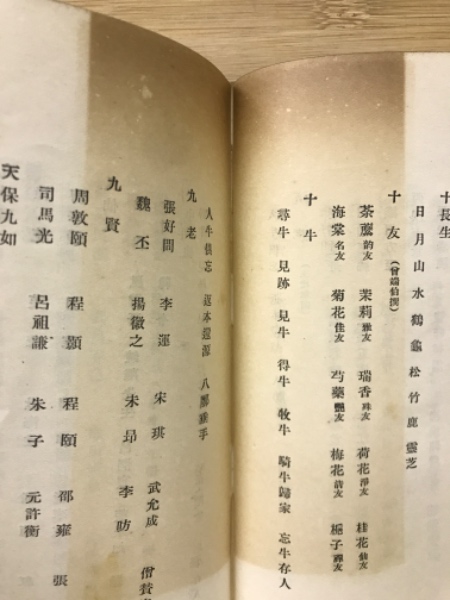 十長生
日 月 山 水 鶴 龜 松 竹 鹿 靈芝
十 友 (曾端伯撰)
茶䕷韵友 茉莉雅友 瑞香殊友 荷花淨友 桂花仙友
海棠名友 菊花佳友 芍藥艷友 梅花淸友 梔子禪友
十 牛
尋牛 見跡 見牛 得牛 牧牛 騎牛歸家 忘牛存人
人牛俱忘 返本還源 入鄽垂手
九 老
張好問 李 運 宋 琪 武允成 僧贊
魏 丕 楊徽之 朱 昂 李 昉
九 賢
周敦頤 程 顥 程 頤 邵 雍 張
司馬光 呂祖謙 朱 子 元許衡
天保九如